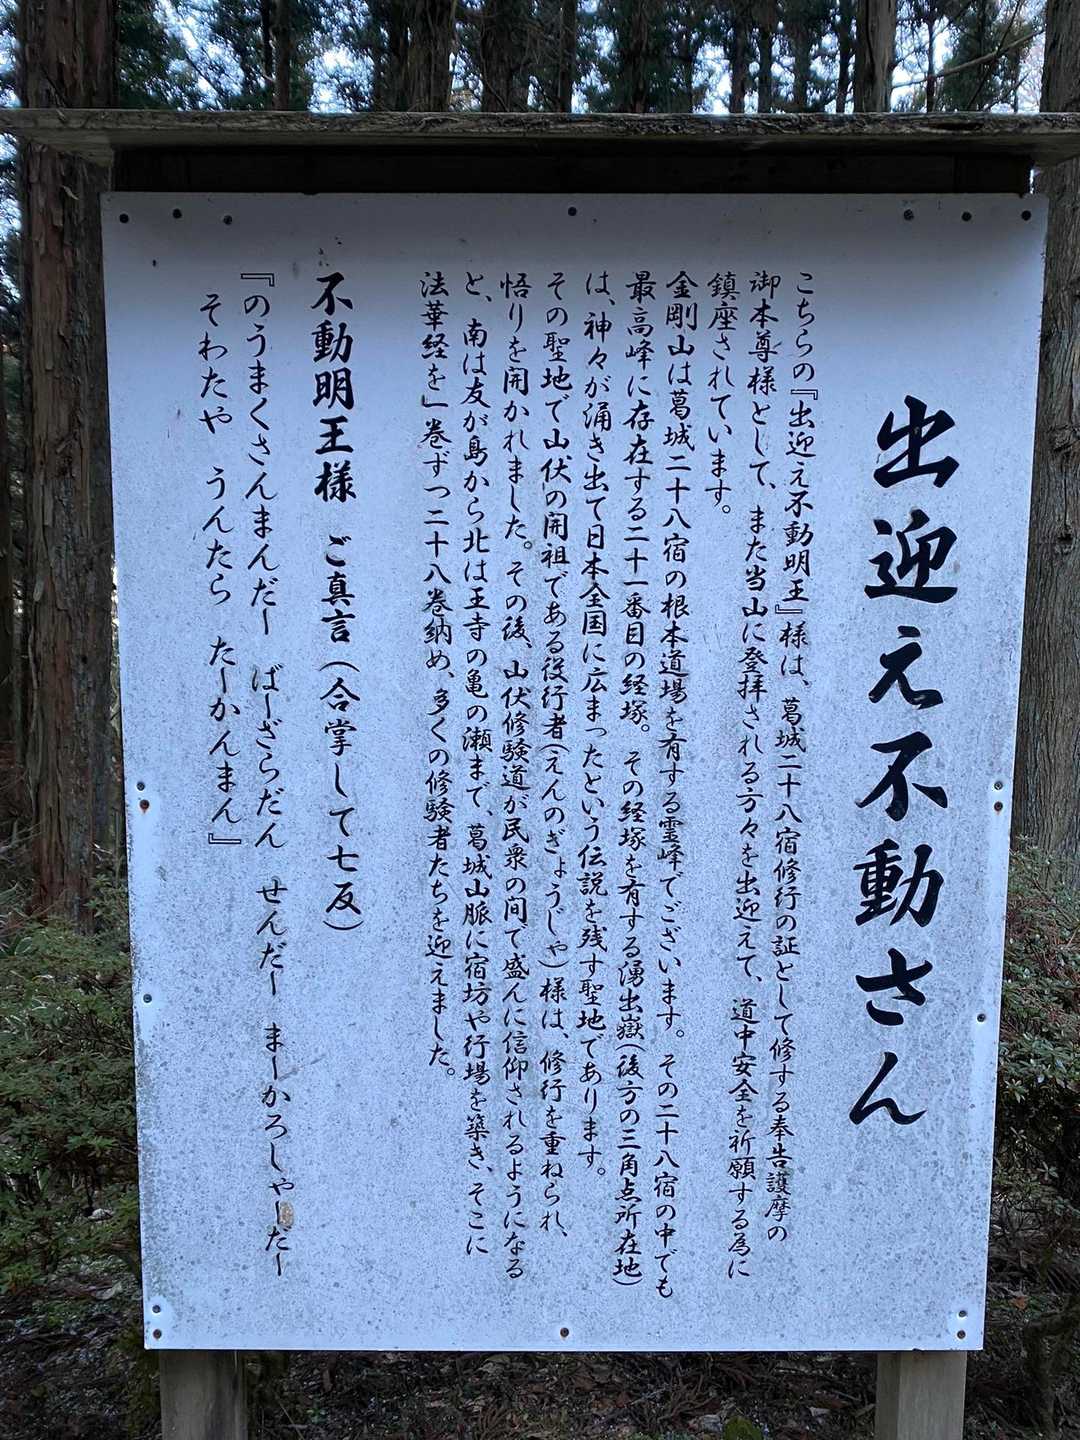 出迎え不動さん
こちらの『出迎え不動明王』様は、葛城二十八宿修行の証として修する奉告護摩の
御本尊様として、また当山に登拝される方々を出迎えて、道中安全を祈願する為に
鎮座されています。
金剛山は葛城二十八宿の根本道場を有する霊峰でございます。その二十八宿の中でも
最高峰に存在する二十一番目の経塚。その経塚を有する湧出嶽(後方の三角点所在地)
は、神々が涌き出て日本全国に広まったという伝説を残す聖地であります。
その聖地で山伏の開祖である役行者(えんのぎょうじゃ)様は、修行を重ねられ、
悟りを開かれました。その後、山伏修験道が民衆の間で盛んに信仰されるようになる
と、南は友が島から北は王寺の亀の瀬まで、葛城山脈に宿坊や行場を築き、そこに
法華経を一巻ずつ二十八巻納め、多くの修験者たちを迎えました。
不動明王様 ご真言(合掌して七反)
『のうまくさんまんだー ばーざらだん せんだー まーかろしゃーだー
そわたや うんたら たーかんまん』